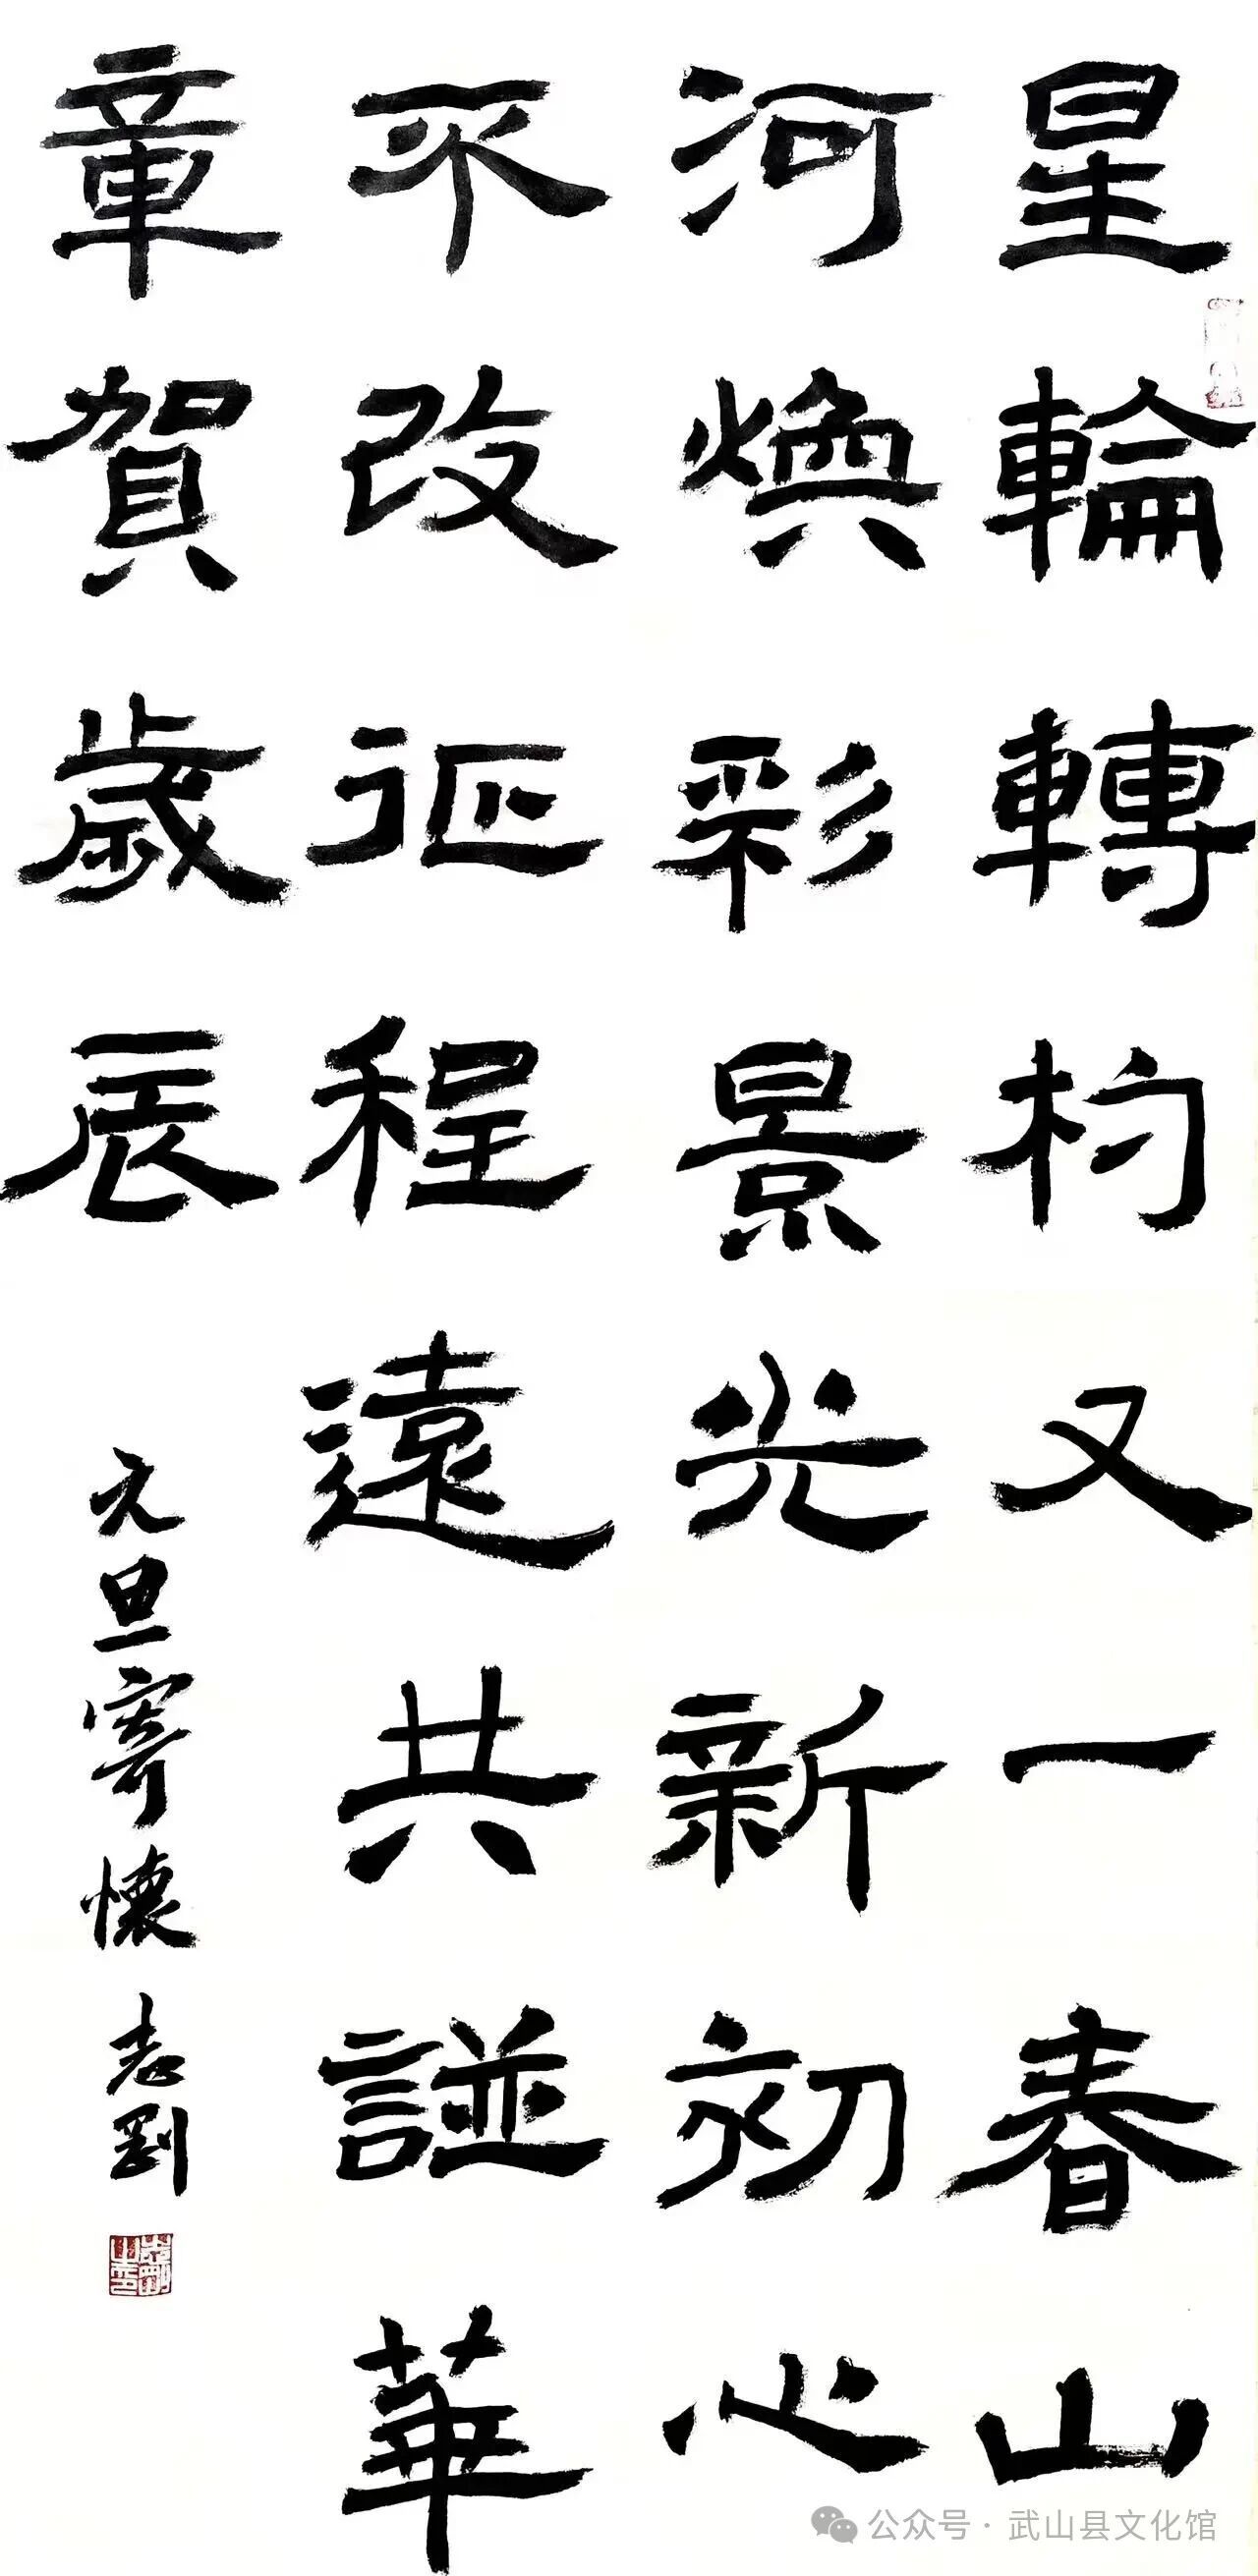 星輪轉杓又一春山
河煥彩景光新初心
不改征程遠共譜華
章賀歲辰
元旦寄懷 老劉
公众号·武山县文化馆